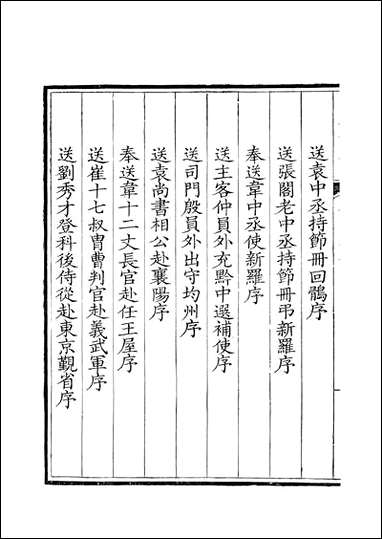 送袁中丞持節冊回鶻序
送張閣老中丞持節冊弔新羅序
奉送韋中丞使新羅序
送主客仲員外充黔中選補使序
送司門殷員外出守均州序
送袁尚書相公赴襄陽序
奉送韋十二丈長官赴任王屋序
送崔十七叔胄曹判官赴義武軍序
送劉秀才登科後侍從赴東京覲省序